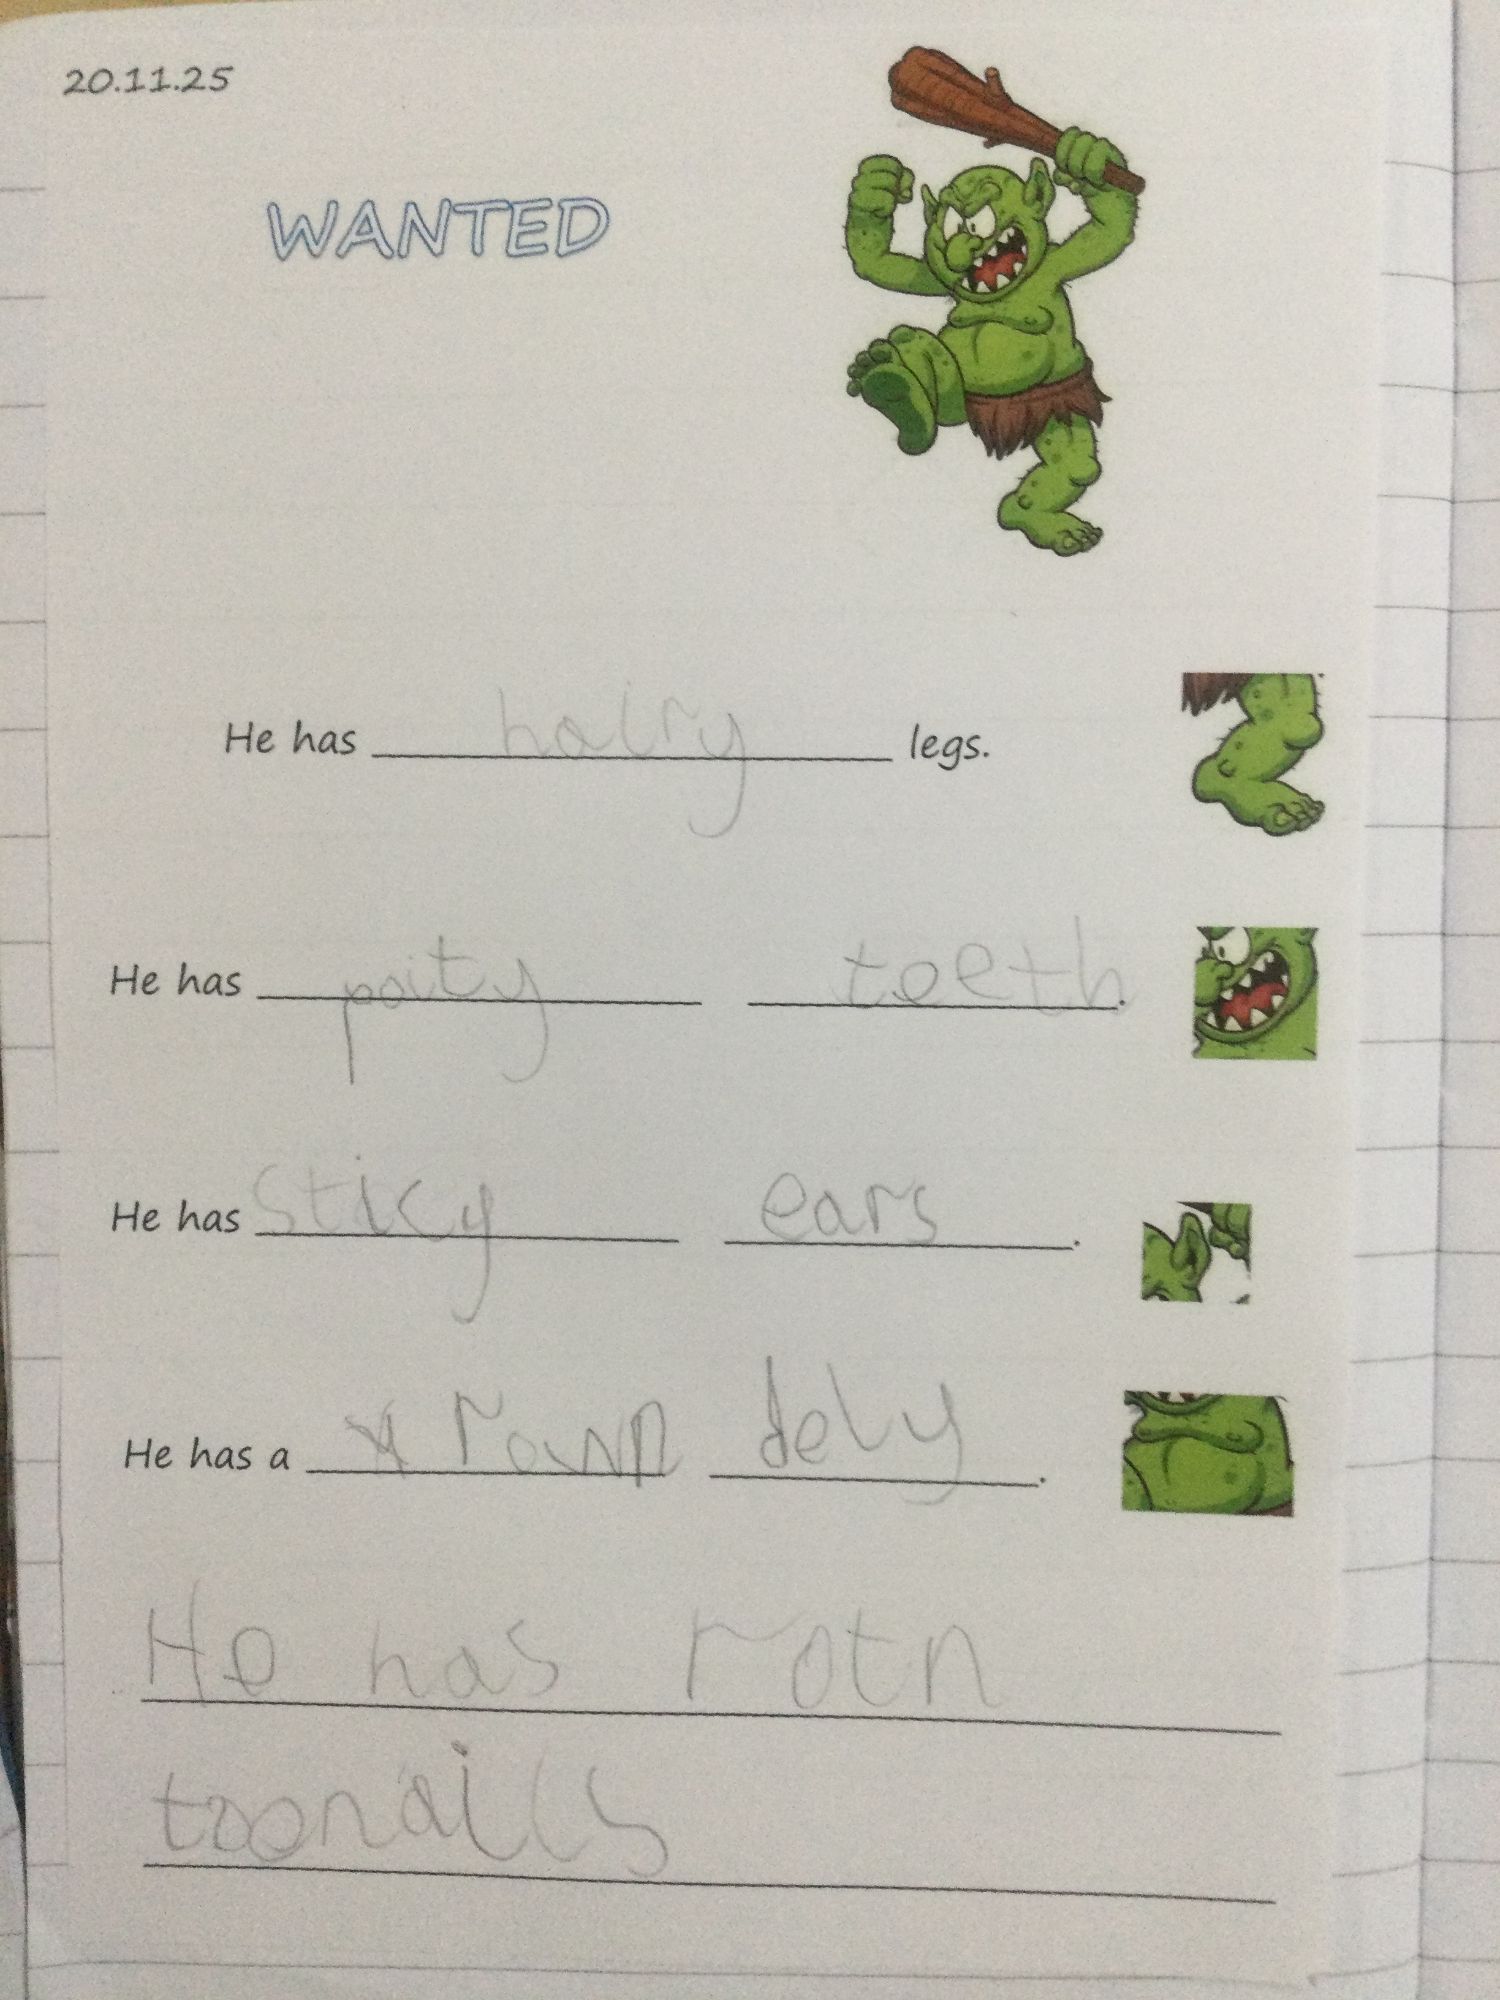 20.11.25
WANTED
He has hairy legs.
He has poity teeth.
He has sticy ears.
He has a rown dely.
He has rotn
toonails